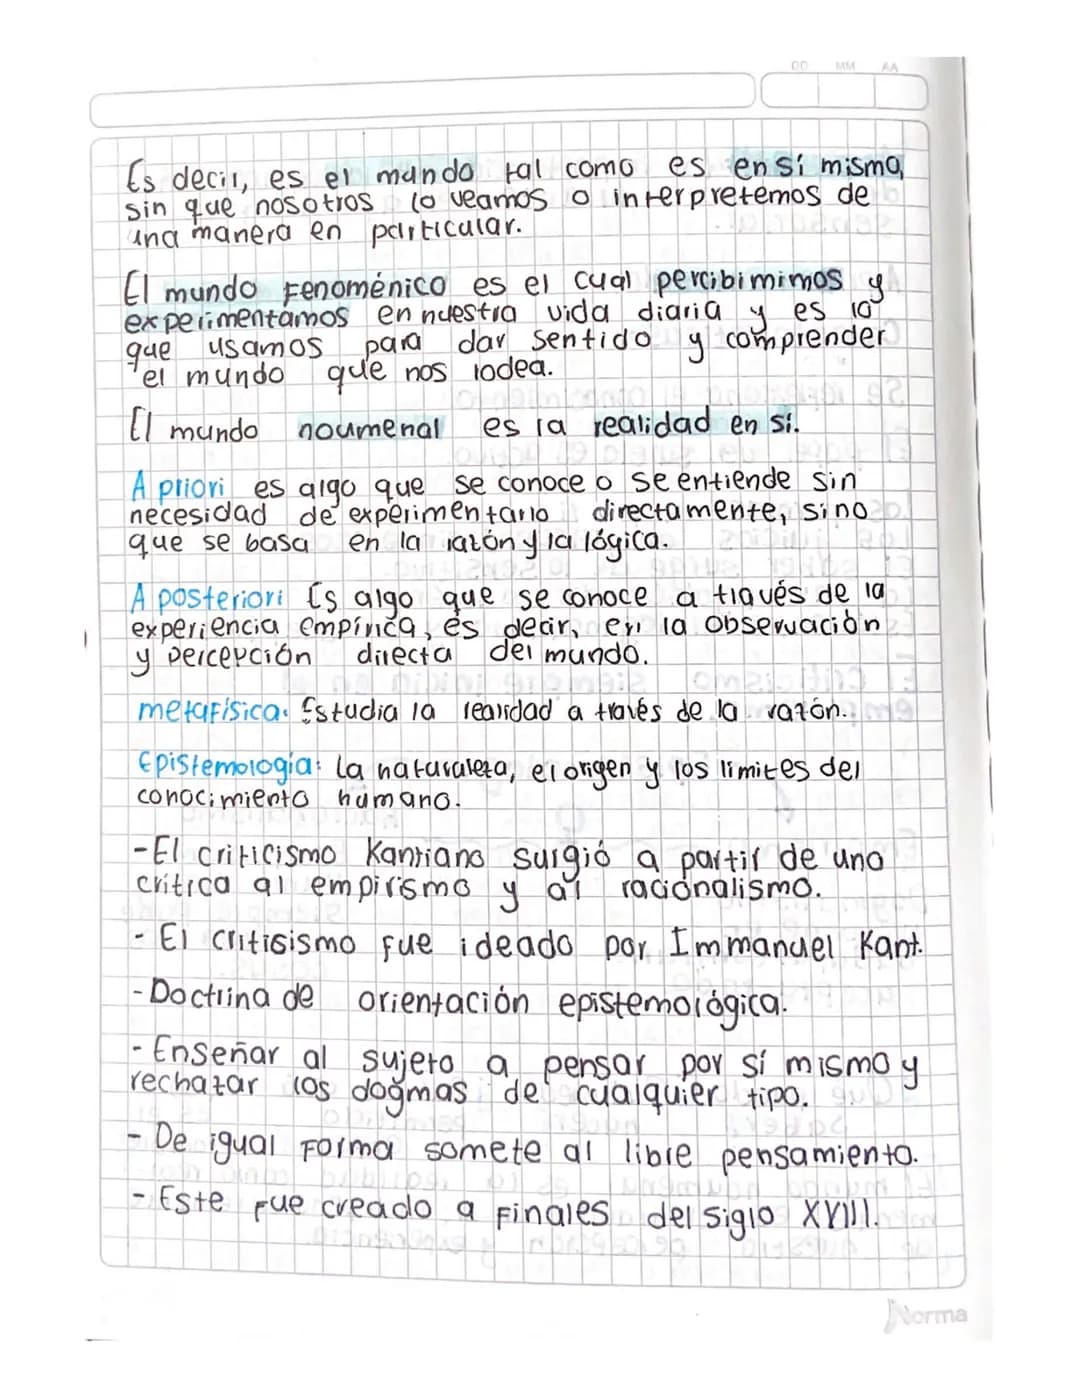 DD MM AA
Es decir, es el mundo tal como es en sí misma,
sin que nosotros lo veamos o interpretemos de
una manera en particular.
El mundo Fenoménico es el cual percibimimos y
experimentamos en nuestra vida diaria y es lo
que usamos para dar sentido y comprender
el mundo que nos rodea.
El mundo noumenal es la realidad en sí.
A priori es algo que se conoce o se entiende sin
necesidad de experimentarlo directamente, sino
que se basa en la razón y la lógica.
A posteriori Es algo que se conoce a través de la
experiencia empírica, es decir, en la observación
y percepción directa del mundo.
metafísica. Estudia la realidad a través de la razón.
Epistemología: La naturaleza, el origen y los limites del
conocimiento humano.
-El criticismo Kantiano surgió a partir de una
crítica al empirismo y al racionalismo.
- El critisismo fue ideado por Immanuel Kant.
-Doctrina de orientación epistemológica.
- Enseñar al sujeto a pensar por sí mismo y
rechazar los dogmas de cualquier tipo.
- De igual Forma somete al libre pensamiento.
- Este Fue creado a Finales del siglo XVIII.
Norma